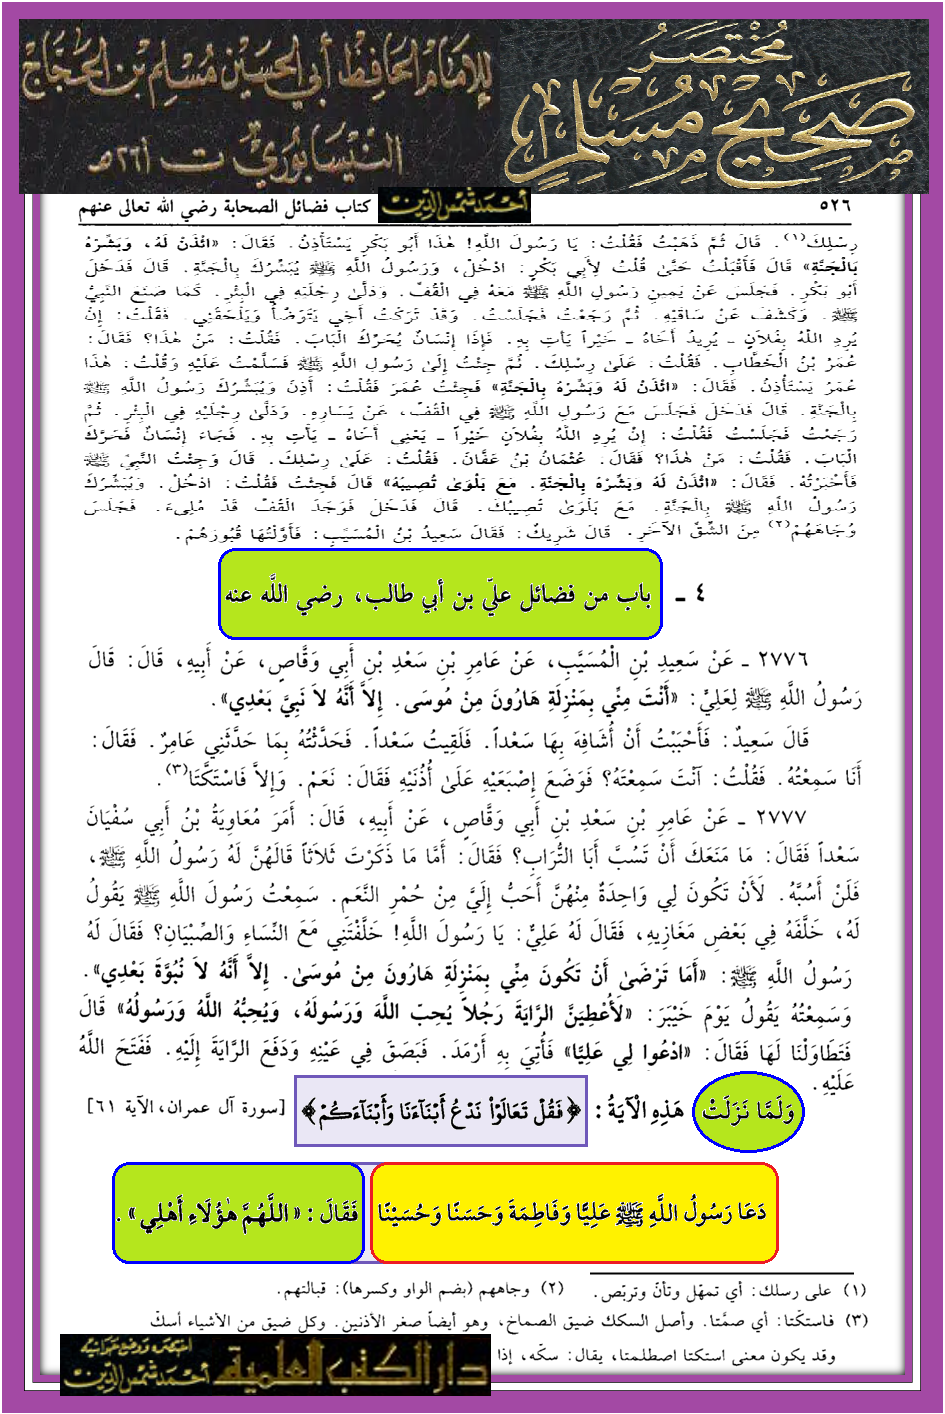 مُخْتَصَرُ
صَحِيحِ مُسْلِمٍ
للإمَام الحَافِظ أبي الحسَين مُسْلِم بن الحَجَّاج
النَّيسَابُوريّ ت ٢٦١هـ
٥٢٦
أحمَد شمسُ الدِّين
كتاب فضائل الصحابة رضي الله تعالى عنهم
رِسْلِكَ(١). قَالَ ثُمَّ ذَهَبْتُ فَقُلْتُ: يَا رَسُولَ اللَّهِ! هٰذَا أَبُو بَكْرٍ يَسْتَأْذِنُ. فَقَالَ: «ائْذَنْ لَهُ، وَبَشِّرْهُ
بِالْجَنَّةِ» قَالَ فَأَقْبَلْتُ حَتَّىٰ قُلْتُ لِأَبِي بَكْرٍ: ادْخُلْ، وَرَسُولُ اللَّهِ ﷺ يُبَشِّرُكَ بِالْجَنَّةِ. قَالَ فَدَخَلَ
أَبُو بَكْرٍ. فَجَلَسَ عَنْ يَمِينِ رَسُولِ اللَّهِ ﷺ مَعَهُ فِي الْقُفِّ. وَدَلَّىٰ رِجْلَيْهِ فِي الْبِئْرِ. كَمَا صَنَعَ النَّبِيُّ
ﷺ. وَكَشَفَ عَنْ سَاقَيْهِ. ثُمَّ رَجَعْتُ فَجَلَسْتُ. وَقَدْ تَرَكْتُ أَخِي يَتَوَضَّأُ وَيَلْحَقُنِي. فَقُلْتُ: إِنْ
يُرِدِ اللَّهُ بِفُلَانٍ ـ يُرِيدُ أَخَاهُ ـ خَيْراً يَأْتِ بِهِ. فَإِذَا إِنْسَانٌ يُحَرِّكُ الْبَابَ. فَقُلْتُ: مَنْ هٰذَا؟ فَقَالَ:
عُمَرُ بْنُ الْخَطَّابِ. فَقُلْتُ: عَلَىٰ رِسْلِكَ. ثُمَّ جِئْتُ إِلَىٰ رَسُولِ اللَّهِ ﷺ فَسَلَّمْتُ عَلَيْهِ وَقُلْتُ: هٰذَا
عُمَرُ يَسْتَأْذِنُ. فَقَالَ: «ائْذَنْ لَهُ وَبَشِّرْهُ بِالْجَنَّةِ» فَجِئْتُ عُمَرَ فَقُلْتُ: أَذِنَ وَيُبَشِّرُكَ رَسُولُ اللَّهِ ﷺ
بِالْجَنَّةِ. قَالَ فَدَخَلَ فَجَلَسَ مَعَ رَسُولِ اللَّهِ ﷺ فِي الْقُفِّ، عَنْ يَسَارِهِ. وَدَلَّىٰ رِجْلَيْهِ فِي الْبِئْرِ. ثُمَّ
رَجَعْتُ فَجَلَسْتُ فَقُلْتُ: إِنْ يُرِدِ اللَّهُ بِفُلَانٍ خَيْراً ـ يَعْنِي أَخَاهُ ـ يَأْتِ بِهِ. فَجَاءَ إِنْسَانٌ فَحَرَّكَ
الْبَابَ. فَقُلْتُ: مَنْ هٰذَا؟ فَقَالَ. عُثْمَانُ بْنُ عَفَّانَ. فَقُلْتُ: عَلَىٰ رِسْلِكَ. قَالَ وَجِئْتُ النَّبِيَّ ﷺ
فَأَخْبَرْتُهُ. فَقَالَ: «ائْذَنْ لَهُ وَبَشِّرْهُ بِالْجَنَّةِ. مَعَ بَلْوَىٰ تُصِيبُهُ» قَالَ فَجِئْتُ فَقُلْتُ: ادْخُلْ. وَيُبَشِّرُكَ
رَسُولُ اللَّهِ ﷺ بِالْجَنَّةِ. مَعَ بَلْوَىٰ تُصِيبُكَ. قَالَ فَدَخَلَ فَوَجَدَ الْقُفَّ قَدْ مُلِىءَ. فَجَلَسَ
وُجَاهَهُمْ(٢) مِنَ الشِّقِّ الآخَرِ. قَالَ شَرِيكٌ: فَقَالَ سَعِيدُ بْنُ الْمُسَيَّبِ: فَأَوَّلْتُهَا قُبُورَهُمْ.
٤ ـ باب من فضائل عليّ بن أبي طالب، رضي اللَّه عنه
٢٧٧٦ ـ عَنْ سَعِيدِ بْنِ الْمُسَيَّبِ، عَنْ عَامِرِ بْنِ سَعْدِ بْنِ أَبِي وَقَّاصٍ، عَنْ أَبِيهِ، قَالَ: قَالَ
رَسُولُ اللَّهِ ﷺ لِعَلِيٍّ: «أَنْتَ مِنِّي بِمَنْزِلَةِ هَارُونَ مِنْ مُوسَى. إِلاَّ أَنَّهُ لاَ نَبِيَّ بَعْدِي».
قَالَ سَعِيدٌ: فَأَحْبَبْتُ أَنْ أُشَافِهَ بِهَا سَعْداً. فَلَقِيتُ سَعْداً. فَحَدَّثْتُهُ بِمَا حَدَّثَنِي عَامِرٌ. فَقَالَ:
أَنَا سَمِعْتُهُ. فَقُلْتُ: آنْتَ سَمِعْتَهُ؟ فَوَضَعَ إِصْبَعَيْهِ عَلَىٰ أُذُنَيْهِ فَقَالَ: نَعَمْ. وَإِلاَّ فَاسْتَكَّتَا(٣).
٢٧٧٧ ـ عَنْ عَامِرِ بْنِ سَعْدِ بْنِ أَبِي وَقَّاصٍ، عَنْ أَبِيهِ، قَالَ: أَمَرَ مُعَاوِيَةُ بْنُ أَبِي سُفْيَانَ
سَعْداً فَقَالَ: مَا مَنَعَكَ أَنْ تَسُبَّ أَبَا التُّرَابِ؟ فَقَالَ: أَمَّا مَا ذَكَرْتَ ثَلَاثاً قَالَهُنَّ لَهُ رَسُولُ اللَّهِ ﷺ،
فَلَنْ أَسُبَّهُ. لَأَنْ تَكُونَ لِي وَاحِدَةٌ مِنْهُنَّ أَحَبُّ إِلَيَّ مِنْ حُمْرِ النَّعَمِ. سَمِعْتُ رَسُولَ اللَّهِ ﷺ يَقُولُ
لَهُ، خَلَّفَهُ فِي بَعْضِ مَغَازِيهِ، فَقَالَ لَهُ عَلِيٌّ: يَا رَسُولَ اللَّهِ! خَلَّفْتَنِي مَعَ النِّسَاءِ وَالصِّبْيَانِ؟ فَقَالَ لَهُ
رَسُولُ اللَّهِ ﷺ: «أَمَا تَرْضَىٰ أَنْ تَكُونَ مِنِّي بِمَنْزِلَةِ هَارُونَ مِنْ مُوسَىٰ. إِلاَّ أَنَّهُ لاَ نُبُوَّةَ بَعْدِي».
وَسَمِعْتُهُ يَقُولُ يَوْمَ خَيْبَرَ: «لَأُعْطِيَنَّ الرَّايَةَ رَجُلاً يُحِبُّ اللَّهَ وَرَسُولَهُ، وَيُحِبُّهُ اللَّهُ وَرَسُولُهُ» قَالَ
فَتَطَاوَلْنَا لَهَا فَقَالَ: «ادْعُوا لِي عَلِيًّا» فَأُتِيَ بِهِ أَرْمَدَ. فَبَصَقَ فِي عَيْنِهِ وَدَفَعَ الرَّايَةَ إِلَيْهِ. فَفَتَحَ اللَّهُ
عَلَيْهِ.
وَلَمَّا نَزَلَتْ هَذِهِ الْآيَةُ: ﴿فَقُلْ تَعَالَوْا نَدْعُ أَبْنَاءَنَا وَأَبْنَاءَكُمْ﴾ [سورة آل عمران، الآية ٦١]
دَعَا رَسُولُ اللَّهِ ﷺ عَلِيًّا وَفَاطِمَةَ وَحَسَنًا وَحُسَيْنًا فَقَالَ: «اللَّهُمَّ هٰؤُلَاءِ أَهْلِي».
(١) على رسلك: أي تمهّل وتأنّ وتربّص. (٢) وجاههم (بضم الواو وكسرها): قبالتهم.
(٣) فاستكّتا: أي صمَّتا. وأصل السكك ضيق الصماخ، وهو أيضاً صغر الأذنين. وكل ضيق من الأشياء أسكّ
وقد يكون معنى استكتا اصطلمتا، يقال: سكّه، إذا
اختصره ووضع حواشيه
أحمَد شمسُ الدِّين
دار الكتب العلمية